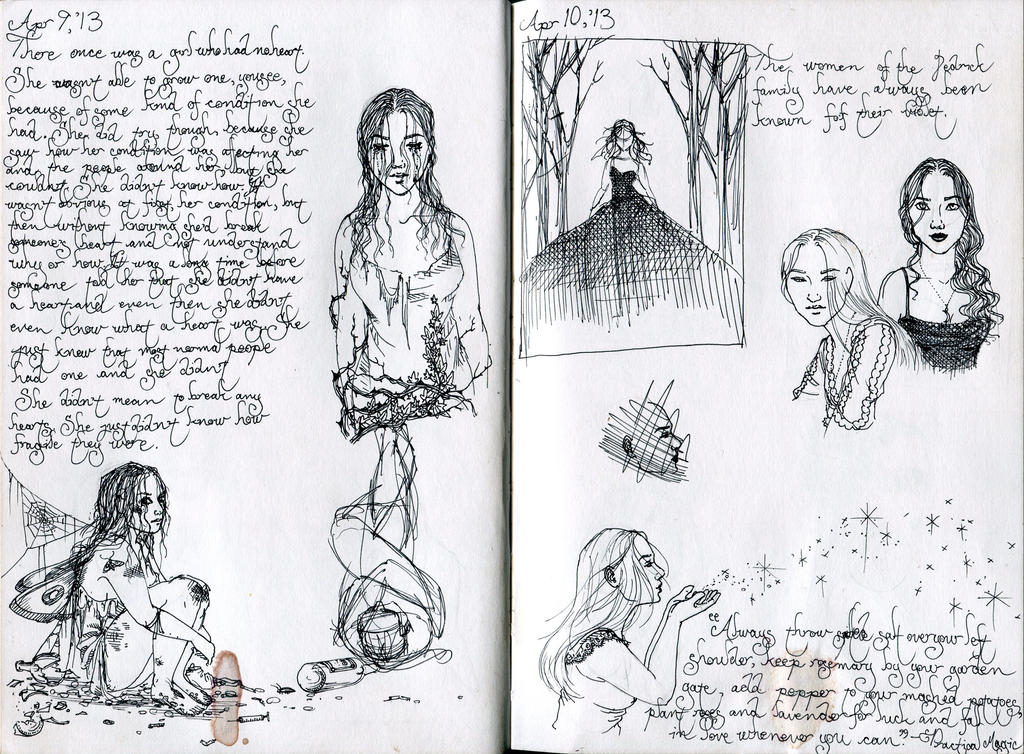 Apr 9, '13
There once was a girl who had no heart.
She wasn't able to grow one, you see,
because of some kind of condition she
had. She did try, though, because she
saw how her condition was afecting her
and the people around her, but she
couldn't. She didn't know how. It
wasn't obvious at first, her condition, but
then without knowing she'd break
someone's heart and not understand
why or how. It was a long time before
someone told her that she didn't have
a heart and even then she didn't
even know what a heart was. She
just knew that most normal people
had one and she didn't
She didn't mean to break any
hearts. She just didn't know how
fragile they were.
Apr 10, '13
The women of the
family have always been
known for their
"Always throw salt over your left
shoulder, keep rosemary by your garden
gate, add pepper to your mashed potatoes,
plant roses and lavender for luck and fall
in love whenever you can." - Practical Magic